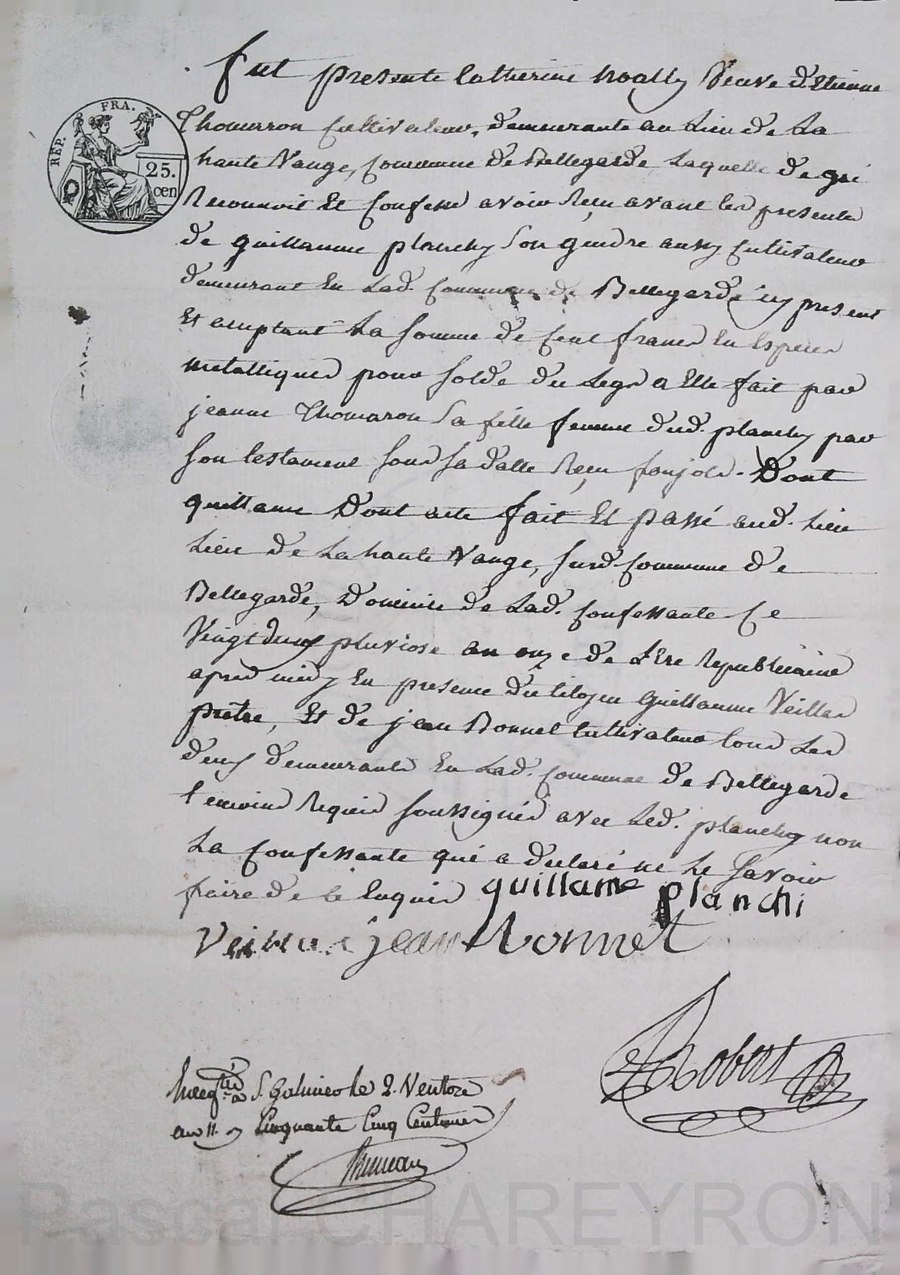 fut presente Catherine noally Veuve d'Etienne
Thomarron Cultivateur, demeurante au Lieu de La
REP. FRA. 25. cen
haute Vange, Commune de Bellegarde Laquelle de gré
Reconnoit Et Confesse avoir Reçu avant les presentes
de guillaume planchy Son gendre aussy Cultivateur
demeurant En Lad. Commune de Bellegarde icy present
Et acceptant La Somme de Cent francs En Especes
metalliques pour Solde du Legs a Elle fait par
jeanne Thomaron Sa fille femme dud. planchy par
Son testament Sous Sa datte Reçu . Dont
quittance Dont acte fait Et passé aud. Lieu
Lieu de La haute Vange, Susd. Commune de
Bellegarde, Domicile de Lad. Confessante Ce
Vingt deux pluviose an onze de L'Ere Republicaine
apres midy En presence du Citoyen Guillaume Veillas
prêtre, Et de jean Bonnet Cultivateur tous Les
deux demeurants En Lad. Commune de Bellegarde
temoins Requis Soussignés avec Led. planchy non
La Confessante qui a declaré ne Le Savoir
faire de ce Enquise guillame planchi
jean bonnet
Robert
S. Galmier le 2. Ventose
an 11. Cinquante Cinq Centimes
Pascal CHAREYRON